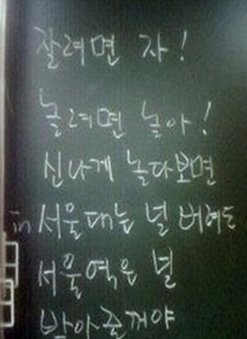 잘려면 자!
놀려면 놀아!
신나게 놀다보면
in서울대는 널 버려도
서울역은 널
받아줄꺼야